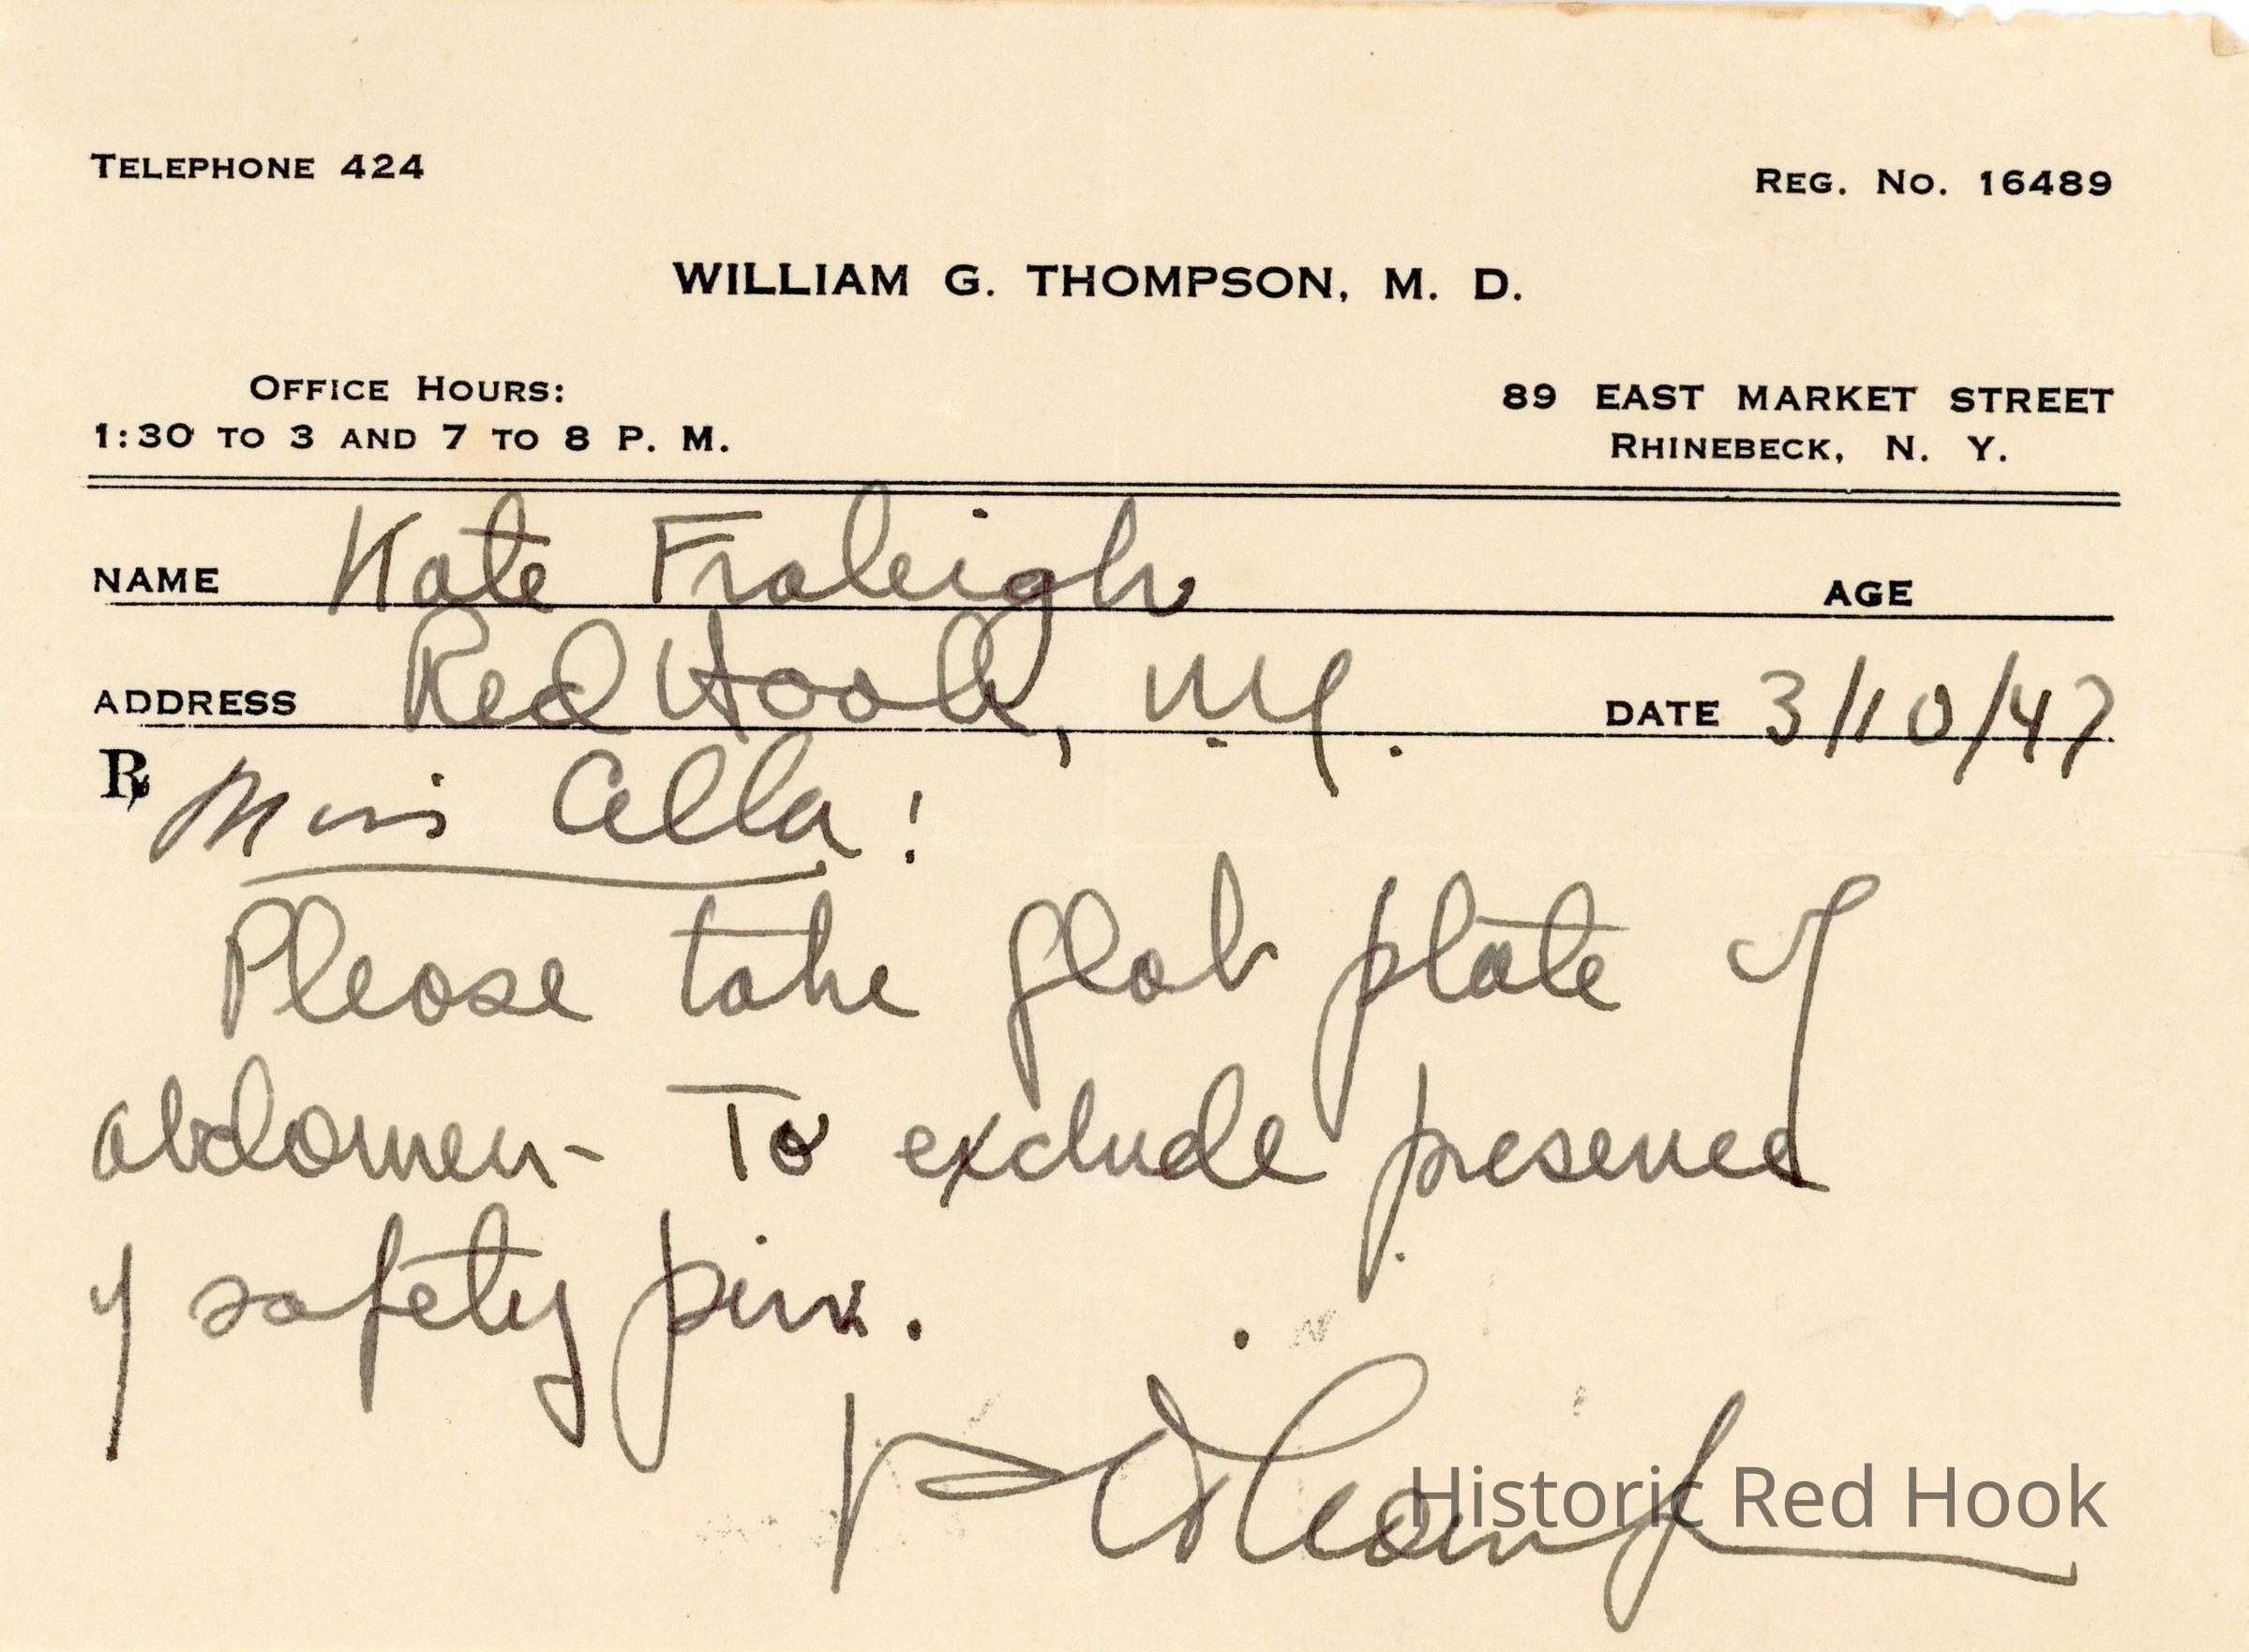 TELEPHONE 424
REG. NO. 16489
WILLIAM G. THOMPSON, M. D.
OFFICE HOURS:
1:30 TO 3 AND 7 TO 8 P. M.
89 EAST MARKET STREET
RHINEBECK, N. Y.
NAME Kate Fraleigh AGE
ADDRESS Red Hook, N.Y. DATE 3/10/47
℞ Miss Cella!
Please take flat plate of
abdomen - To exclude presence
of safety pin.
Historic Red Hook